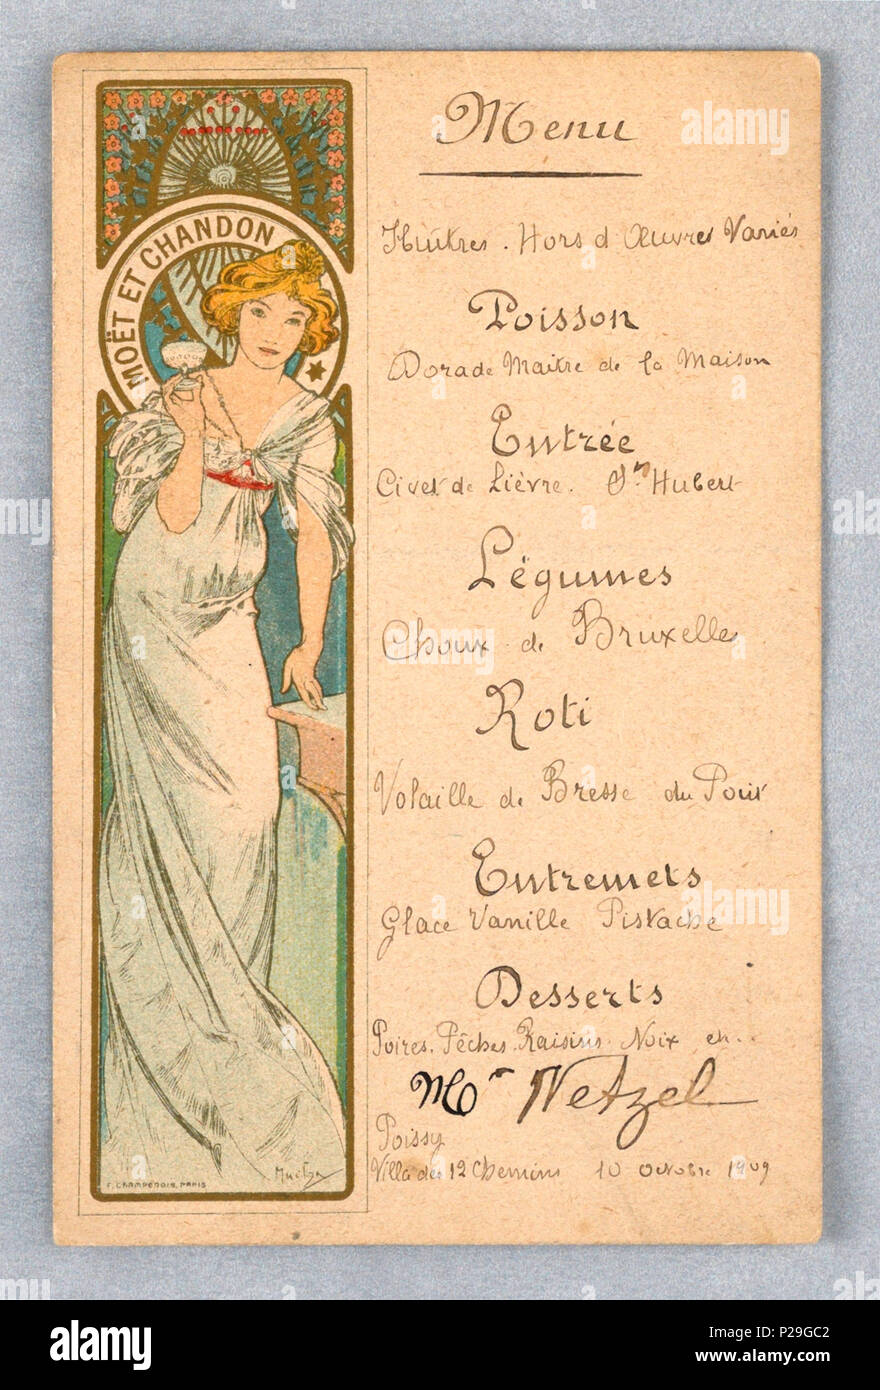 MOËT ET CHANDON
Menu
Huitres. Hors d Œuvres Variés
Poisson
Dorade Maitre de la Maison
Entrée
Civet de Lièvre. Sᵗ Hubert
Légumes
Choux de Bruxelles
Roti
Volaille de Bresse du
Entremets
Glace Vanille Pistache
Desserts
Poires. Pêches. Raisins. Noix
Mr Wetzel
Poissy
Villa des 12 Chemins 10 Octobre 1909
Mucha
F. CHAMPENOIS, PARIS
alamy stock photo
alamy
P29GC2
www.alamy.com